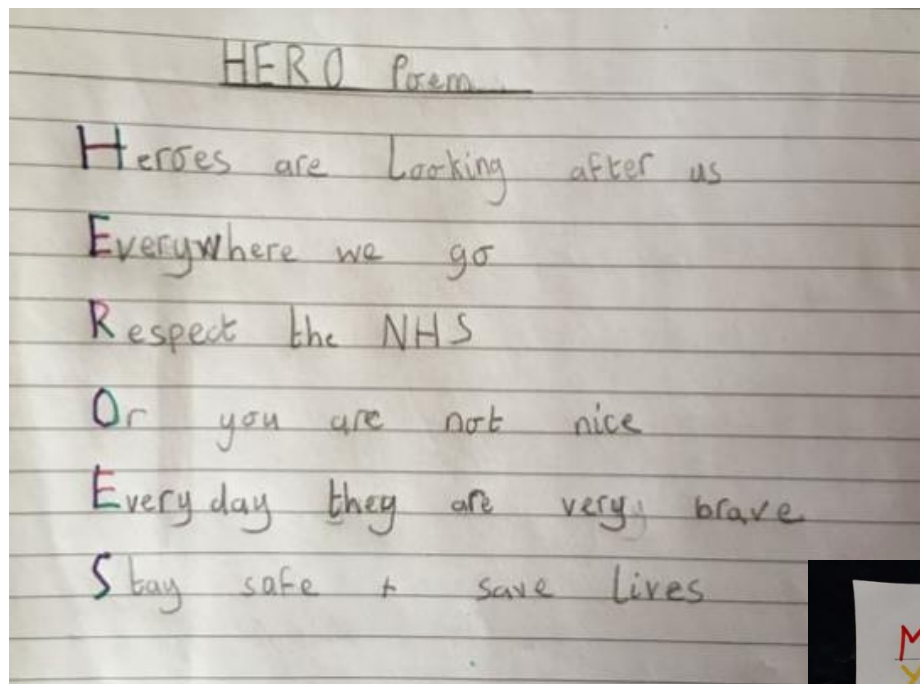 HERO Poem
Heroes are Looking after us
Everywhere we go
Respect the NHS
Or you are not nice
Every day they are very brave
Stay safe + save lives
M
Y